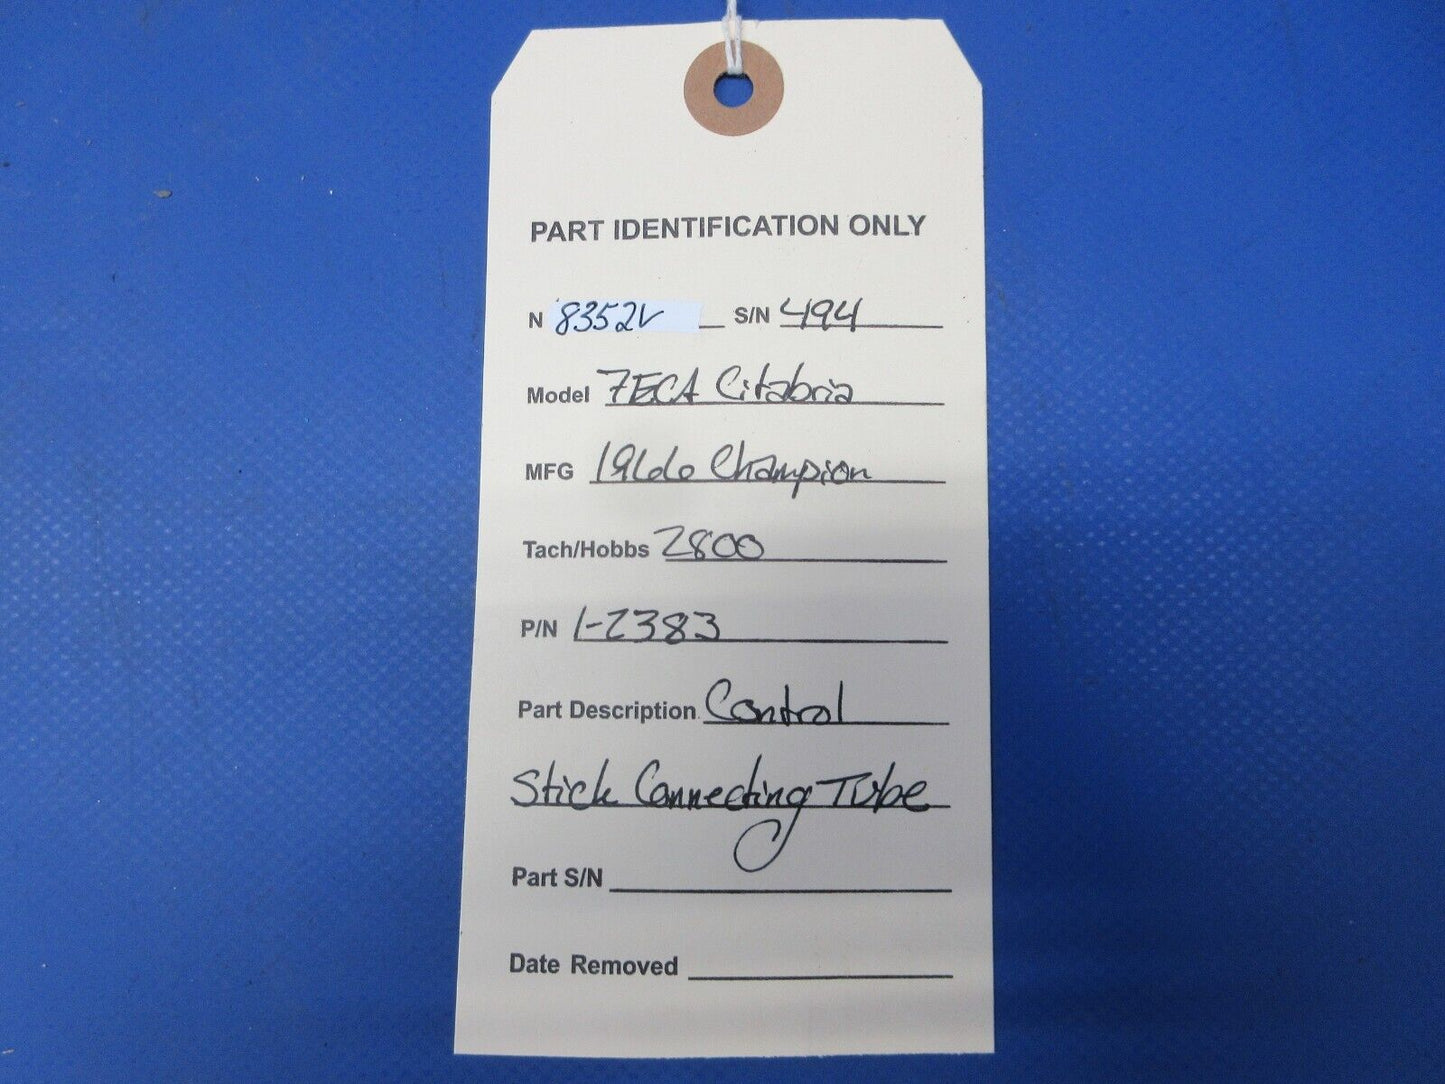 PART IDENTIFICATION ONLY
N 8352V S/N 494
Model 7ECA Citabria
MFG 1966 Champion
Tach/Hobbs 2800
P/N 1-2383
Part Description Control
Stick Connecting Tube
Part S/N
Date Removed